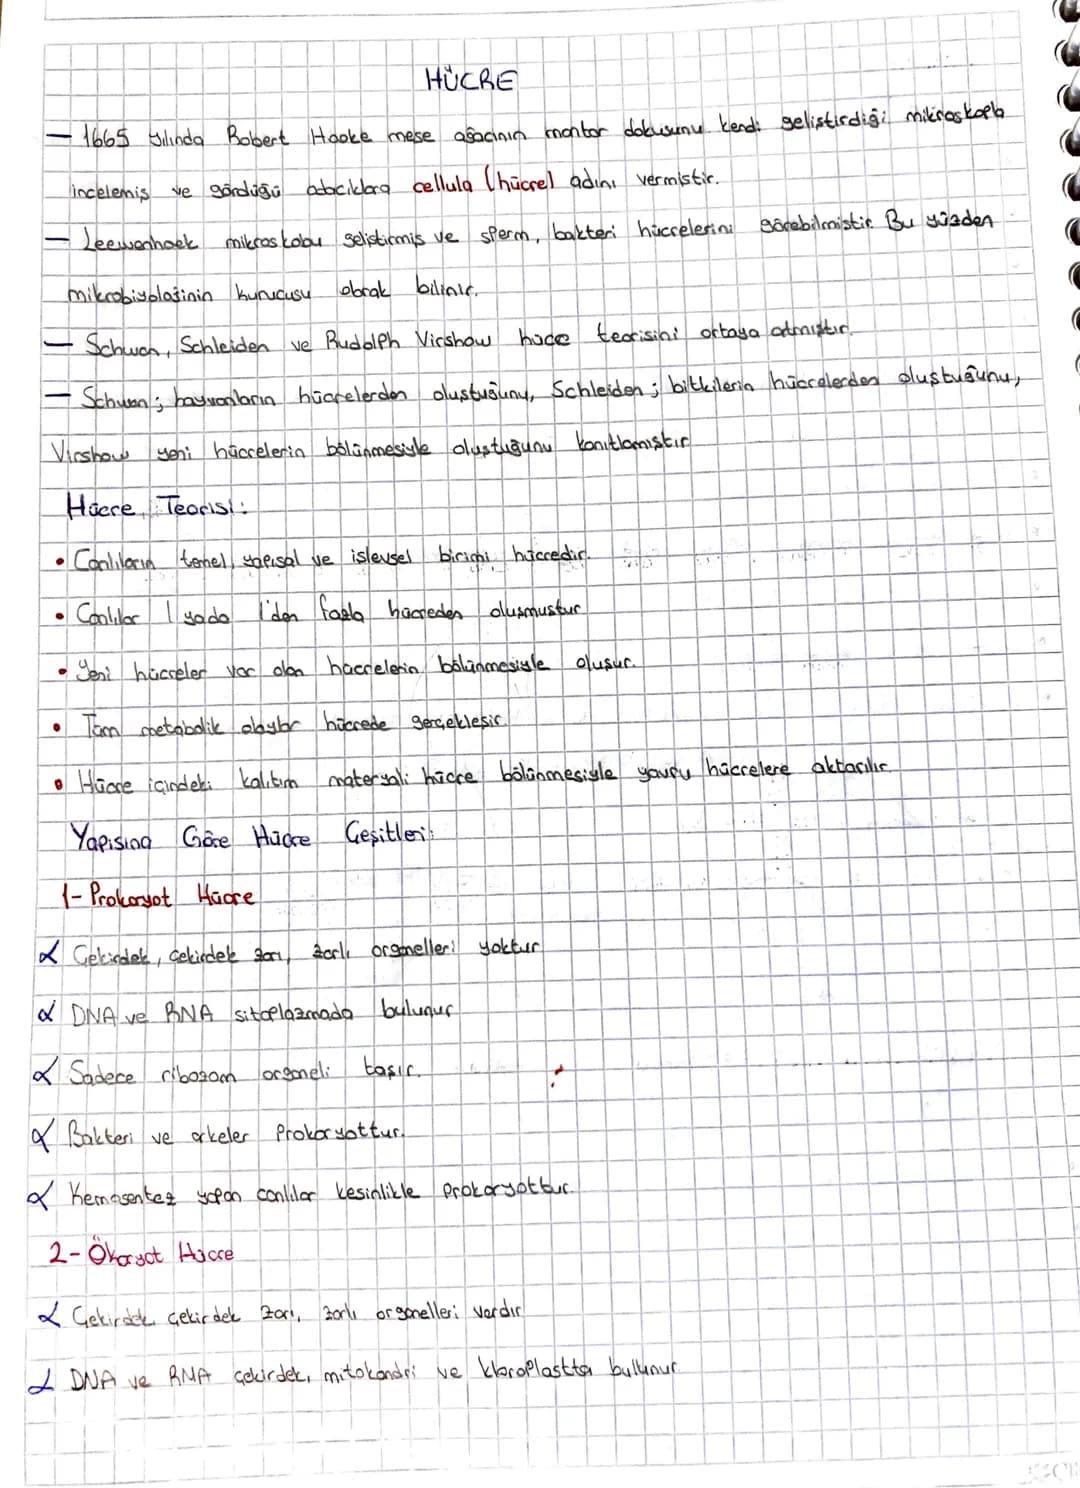 HÜCRE
— 1665 yılında Robert Hooke meşe ağacının mantar dokusunu kendi geliştirdiği mikroskopla
incelemiş ve gördüğü odacıklara cellula (hücre) adını vermiştir.
— Leewenhoek mikroskobu geliştirmiş ve sperm, bakteri hücrelerini görebilmiştir. Bu yüzden
mikrobiyolojinin kurucusu olarak bilinir.
— Schwan, Schleiden ve Rudolph Virshow hücre teorisini ortaya atmıştır.
— Schwan; hayvanların hücrelerden oluştuğunu, Schleiden; bitkilerin hücrelerden oluştuğunu,
Virshow yeni hücrelerin bölünmesiyle oluştuğunu kanıtlamıştır.
Hücre Teorisi:
• Canlıların temel, yapısal ve işlevsel birimi hücredir.
• Canlılar 1 yada 1'den fazla hücreden oluşmuştur.
• Yeni hücreler var olan hücrelerin bölünmesiyle oluşur.
• Tüm metabolik olaylar hücrede gerçekleşir.
• Hücre içindeki kalıtım materyali hücre bölünmesiyle yavru hücrelere aktarılır.
Yapısına Göre Hücre Çeşitleri:
1- Prokaryot Hücre
α Çekirdek, çekirdek zarı, zarlı organelleri yoktur.
α DNA ve RNA sitoplazmada bulunur.
α Sadece ribozom organeli taşır.
α Bakteri ve arkeler prokaryottur.
α Kemosentez yapan canlılar kesinlikle prokaryottur.
2- Ökaryot Hücre
α Çekirdek, çekirdek zarı, zarlı organelleri vardır.
α DNA ve RNA çekirdek, mitokondri ve kloroplastta bullunur.